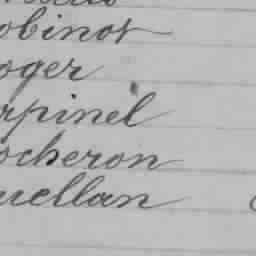 obinot
oger
rpinel
ocheron
uellan